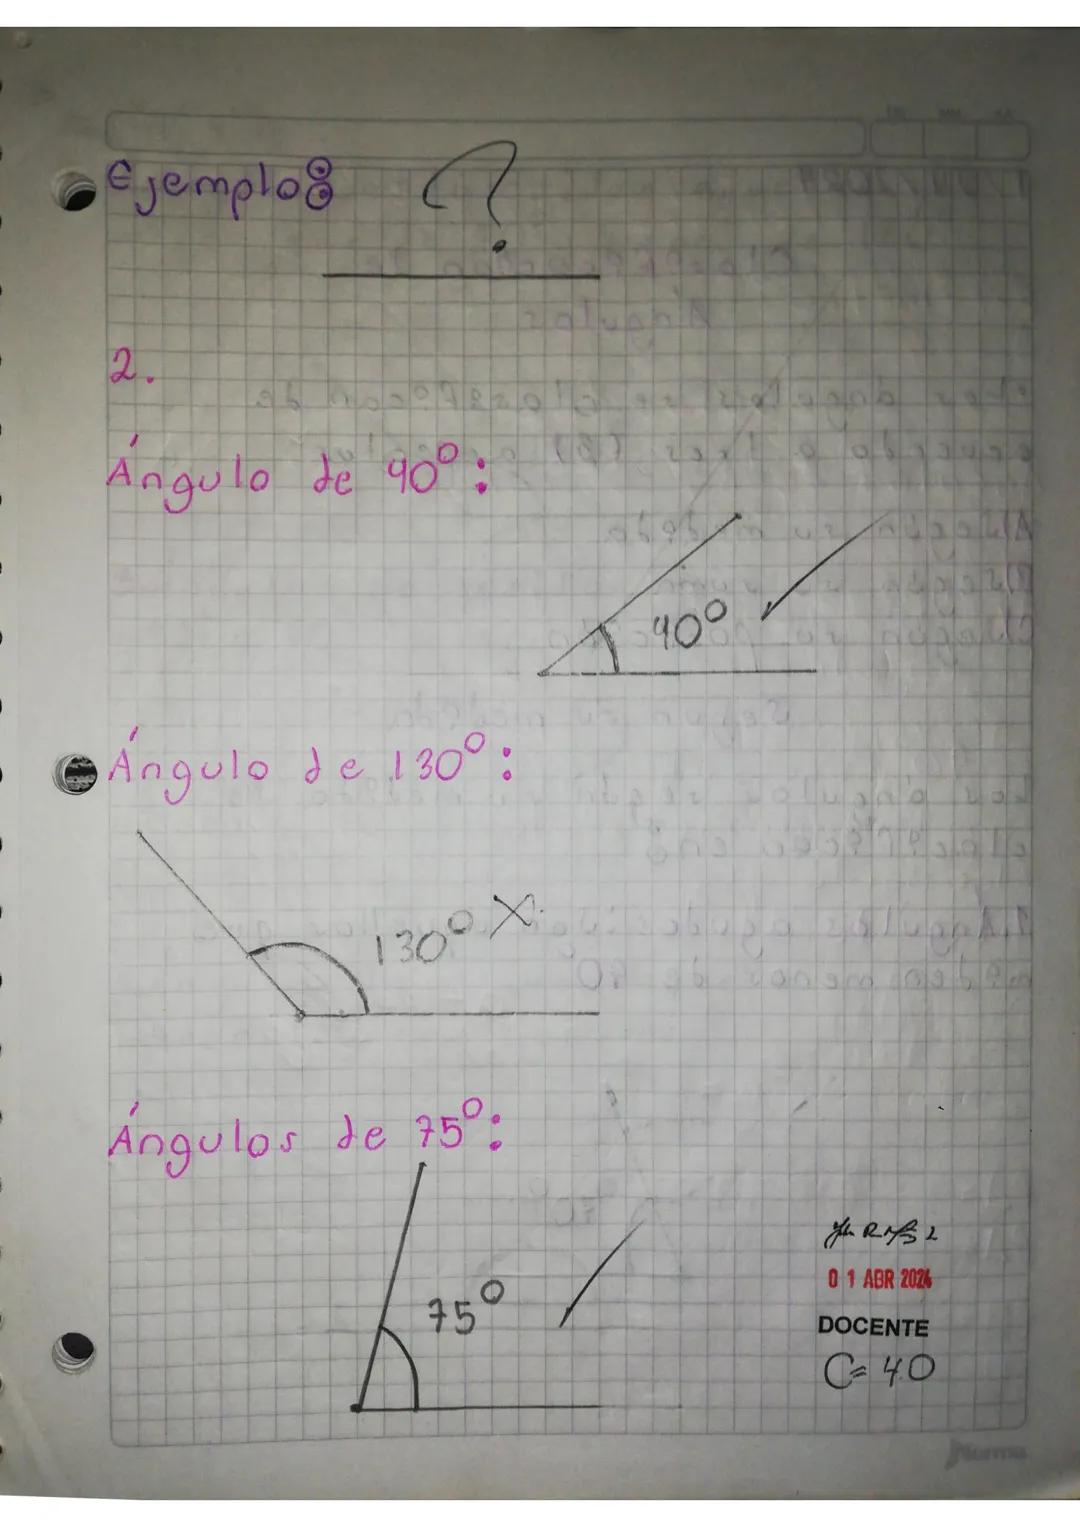 Ejemplo:
?
2.
Ángulo de 40°:
40°
Ángulo de 130°:
130° X
Ángulos de 75°:
75°
01 ABR 2024
DOCENTE
C= 4.0
Norma